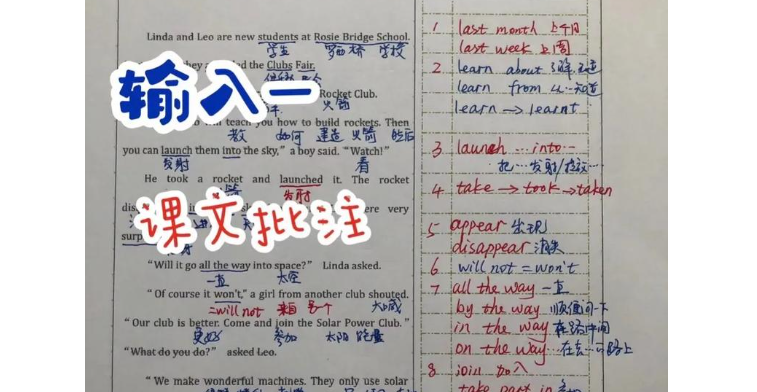 Linda and Leo are new students at Rosie Bridge School.
学生 罗西 桥 学校
the Clubs Fair.
输入一
Rocket Club.
火箭
teach you how to build rockets. Then
教 如何 建造 火箭 然后
you can launch them into the sky," a boy said. "Watch!"
发射 看
He took a rocket and launched it. The rocket
发射
very
课文批注
"Will it go all the way into space?" Linda asked.
一直 太空
"Of course it won't," a girl from another club shouted.
=will not 来自 另一个 大喊
"Our club is better. Come and join the Solar Power Club."
更好 参加 太阳 能量
"What do you do?" asked Leo.
"We make wonderful machines. They only use solar
1 last month 上个月
last week 上周
2 learn about 了解
learn from 从…知道
learn → learnt
3 launch … into …
把…发射/
4 take → took → taken
5 appear 出现
disappear 消失
6 will not = won't
7 all the way 一直
by the way 顺便问一下
in the way
on the way 在去…路上
8 join 加入
take part in